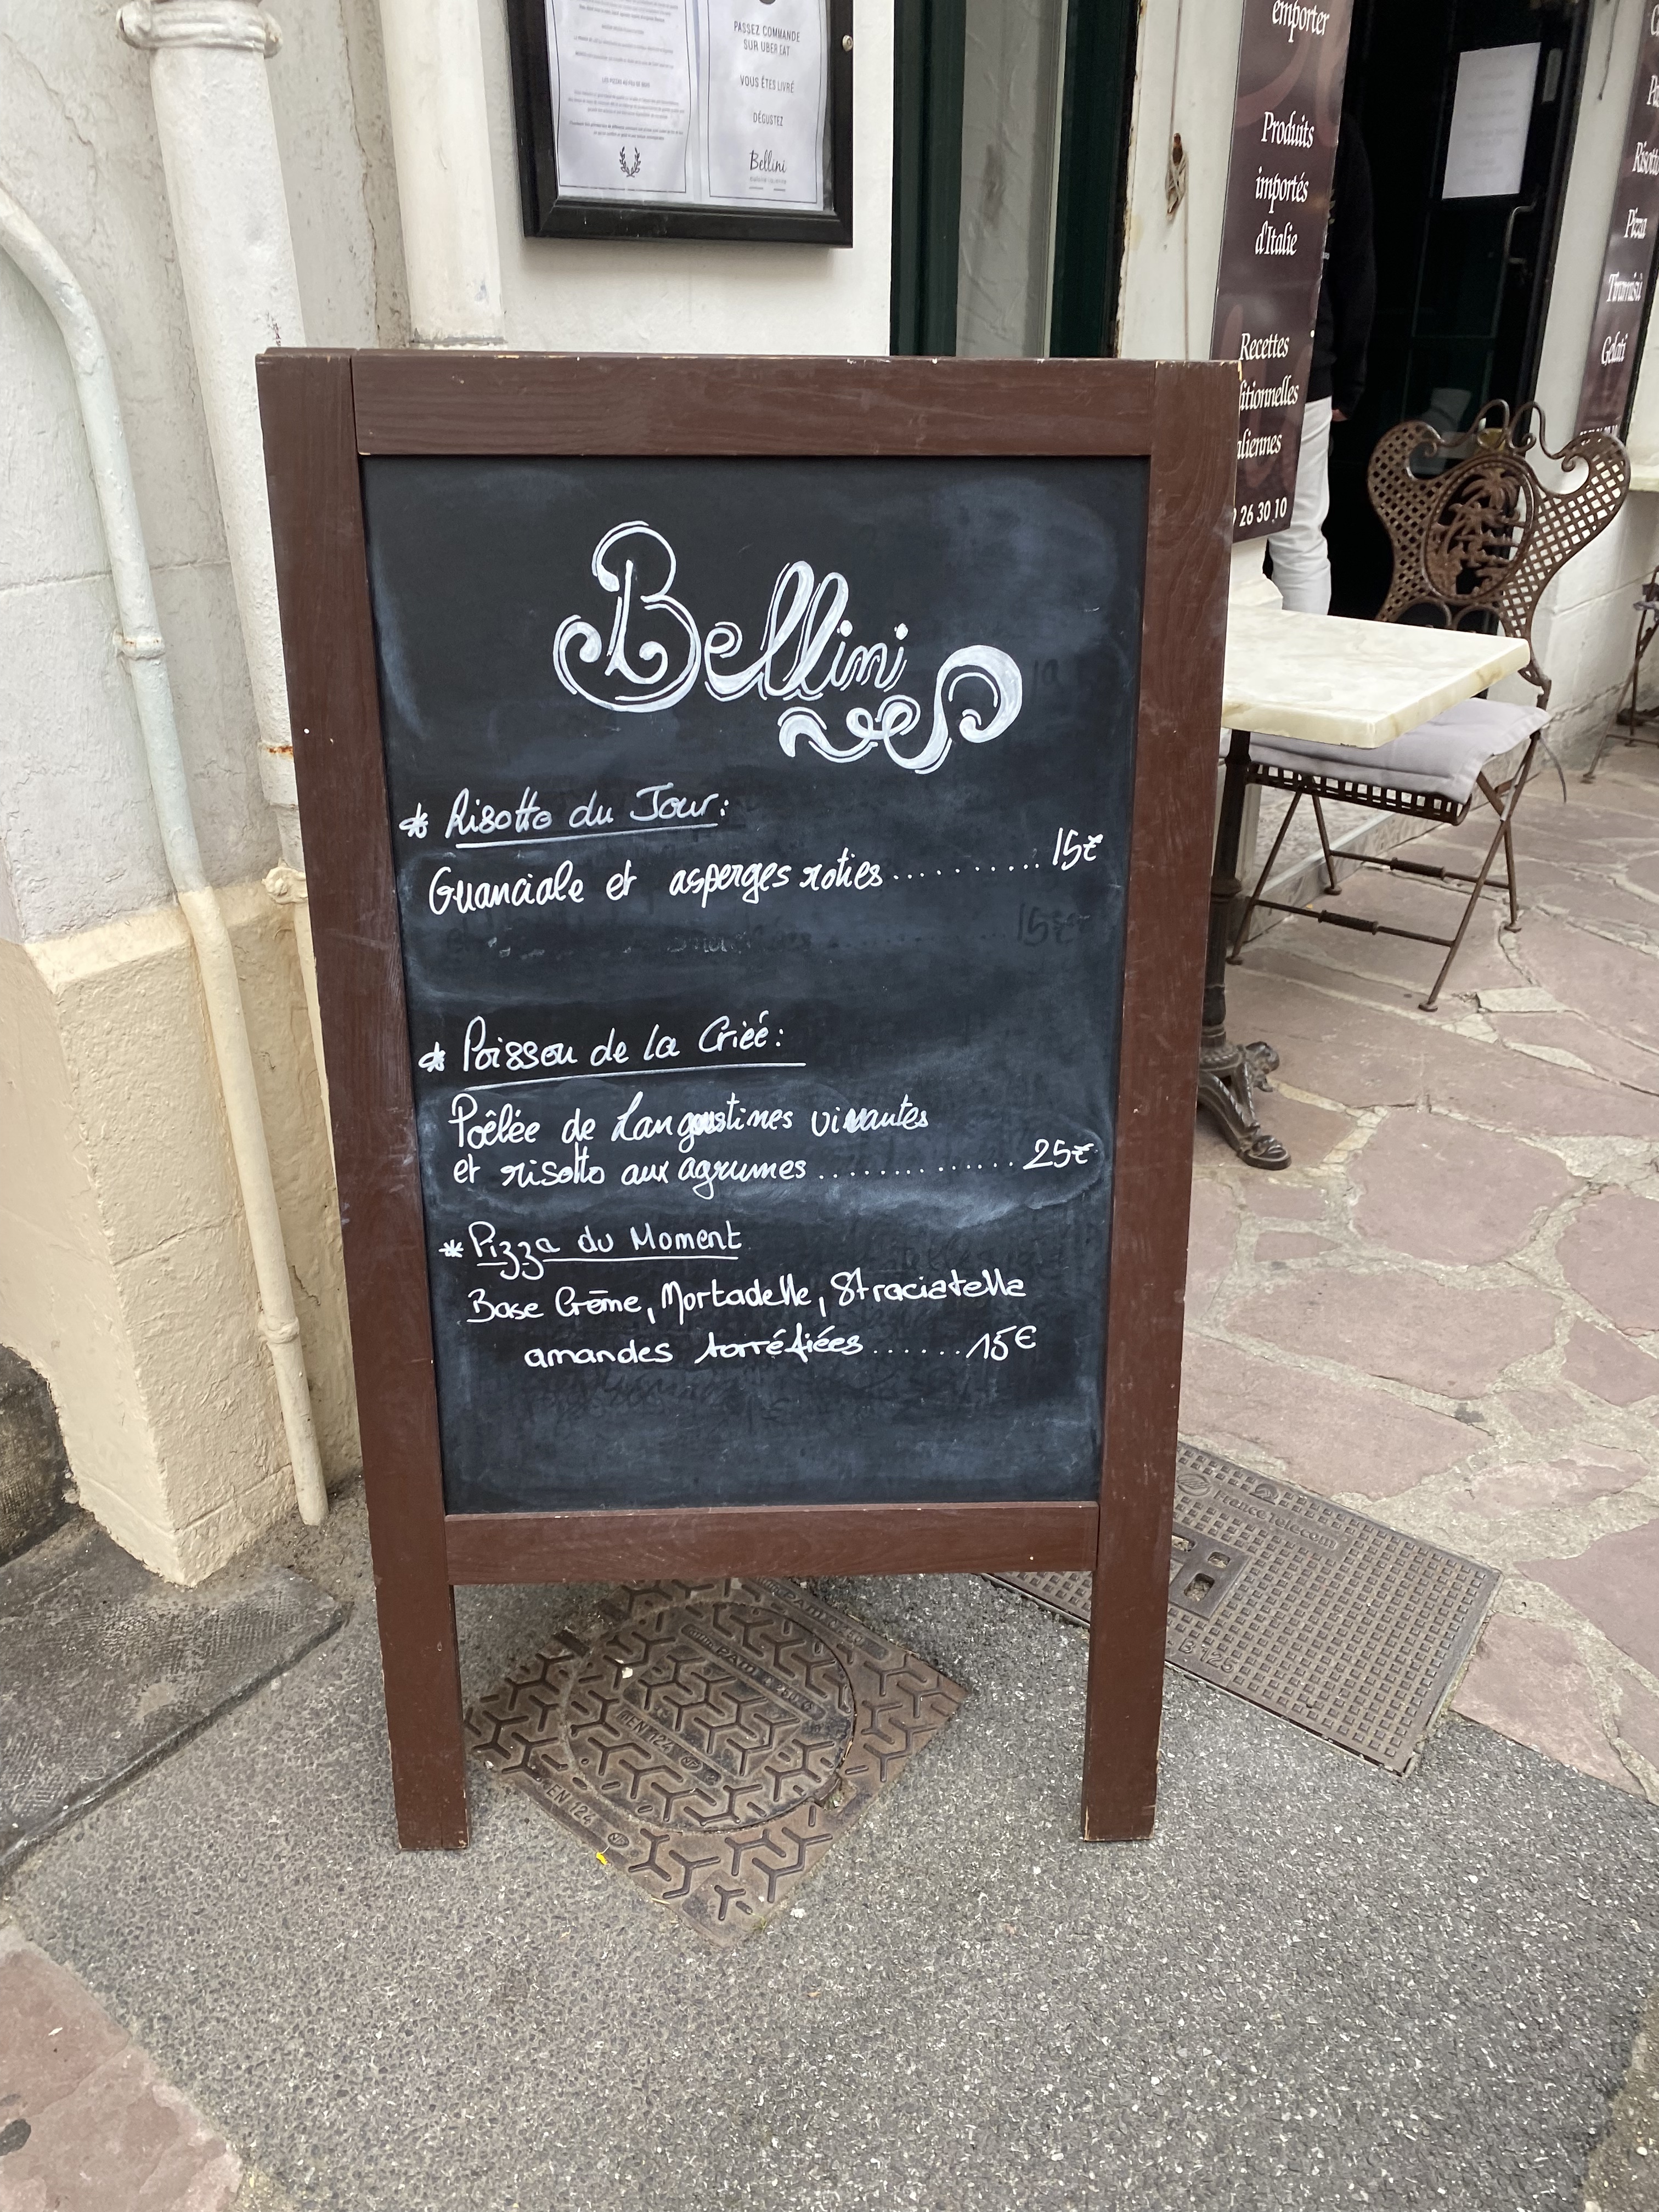 PASSEZ COMMANDE
SUR UBER EAT
VOUS ÊTES LIVRÉ
DÉGUSTEZ
Bellini
emporter
Produits
importés
d'Italie
Recettes
ditionnelles
aliennes
26 30 10
Risotto
Pizza
Tiramisù
Gelati
Bellini
* Risotto du Jour:
Guanciale et asperges roties.......... 15€
15€
* Poisson de la Criéé:
Poêlée de Langoustines vivantes
et risotto aux agrumes.............. 25€
* Pizza du Moment
Base Crême, Mortadelle, Straciatella
amandes torréfiées......15€
France Telecom
B 125
PAM
EN 124
EN 124